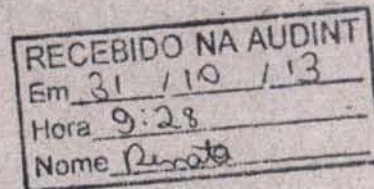 RECEBIDO NA AUDINT
Em 31 / 10 / 13
Hora 9:28
Nome Renata